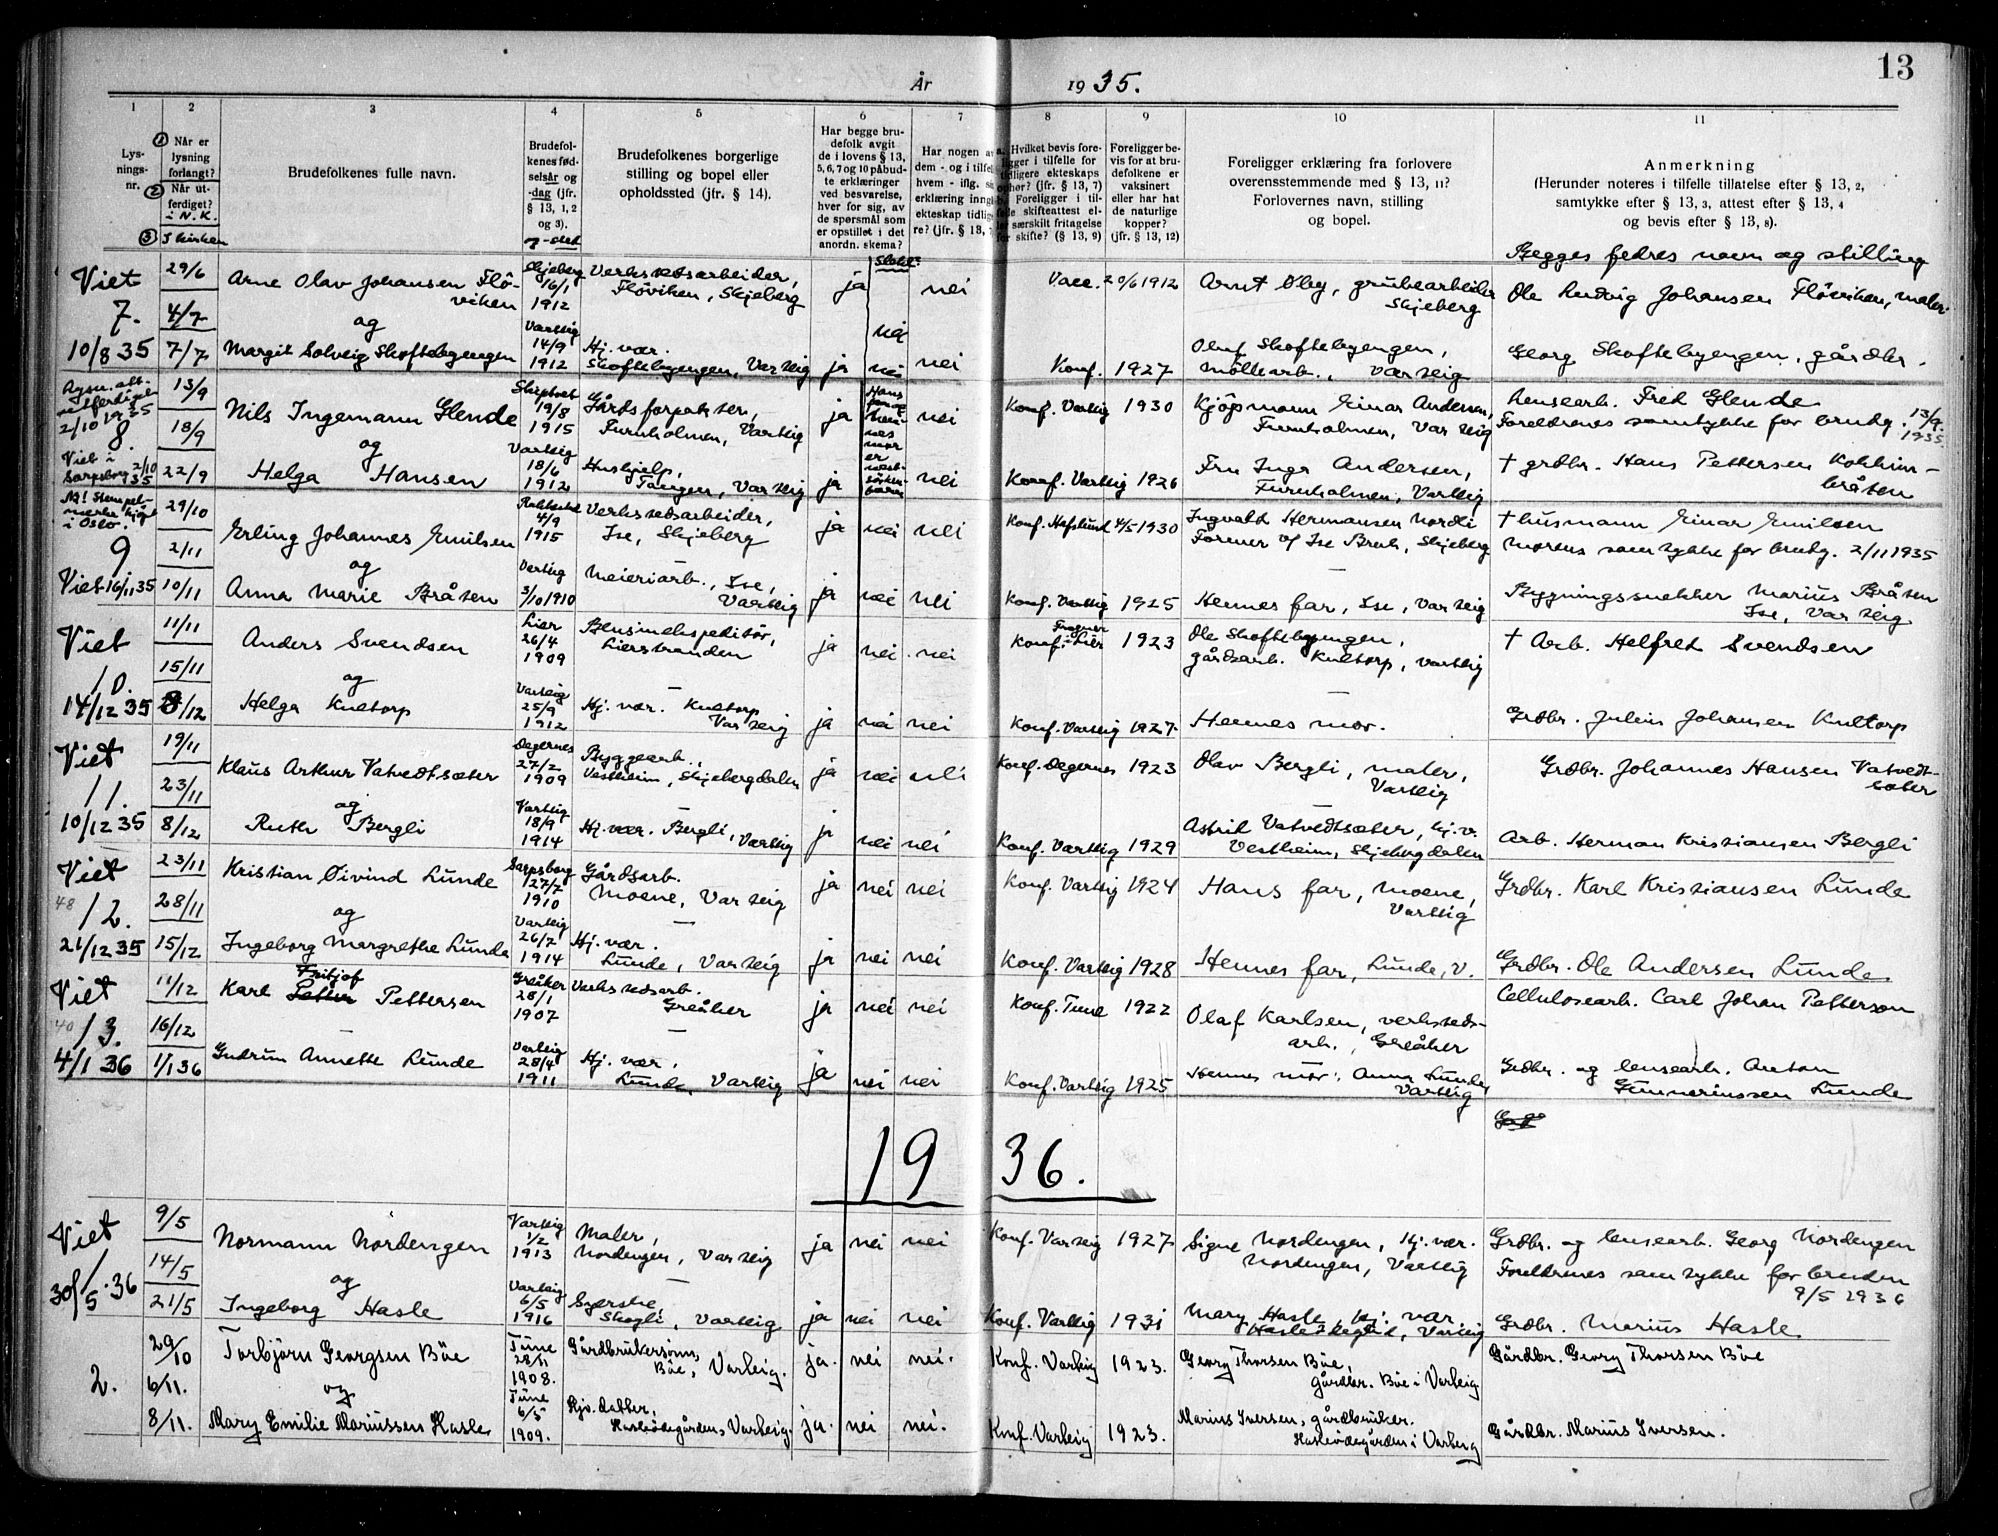 13
År 1935.
1 2 3 4 5 6 7 8 9 10 11
Lys-
nings-
nr.
Når er
lysning
forlangt?
Når ut-
ferdiget?
i N.K.
I kirken
Brudefolkenes fulle navn.
Brudefol-
kenes fød-
selsår og
-dag (jfr.
§ 13, 1, 2
og 3).
Brudefolkenes borgerlige
stilling og bopel eller
opholdssted (jfr. § 14).
Har begge bru-
defolk avgit
de i lovens § 13,
5, 6, 7 og 10 påbud-
te erklæringer
ved besvarelse,
hver for sig, av
de spørsmål som
er opstillet i det
anordn. skema?
Hvilket bevis fore-
ligger i tilfelle for
tidligere ekteskaps
ophør? (jfr. § 13, 7)
Foreligger i til-
felle skifteattest el-
ler særskilt fritagelse
for skifte? (§ 13, 9)
Foreligger be-
vis for at bru-
defolkene er
vaksinert
eller har hat
de naturlige
kopper?
(jfr. § 13, 12)
Foreligger erklæring fra forlovere
overensstemmende med § 13, 11?
Forlovernes navn, stilling
og bopel.
Anmerkning
(Herunder noteres i tilfelle tillatelse efter § 13, 2,
samtykke efter § 13, 3, attest efter § 13, 4
og bevis efter § 13, 8).
Begges fedres navn og stilling
Viet
7.
10/8 35
29/6
4/7
7/7
Arne Olav Johansen Flö-
viken
og
Margit Solveig Skoftebyengen
Skjeberg
16/1
1912
Varteig
14/9
1912
Verkstedsarbeider,
Flöviken, Skjeberg
Hj. vær.
Skoftebyengen, Varteig
ja
nei
nei
ja
nei
nei
Vacc. 20/6 1912
Konf. 1927
Arnt Øby, grubearbeider
Skjeberg
Oluf Skoftebyengen,
möllearb., Varteig
Ole Ludvig Johansen Flöviken, maler.
Georg Skoftebyengen, gårdbr.
8.
2/10 1935
Viet i
Sarpsborg 2/10 35
13/9
18/9
22/9
Nils Ingemann Glende
og
Helga Hansen
19/8
1915
Varteig
18/6
1912
Gårdsforpakter,
Furuholmen, Varteig
Hushjelp,
Tangen, Varteig
ja
nei
ja
nei
Konf. Varteig 1930
Konf. Varteig 1926
Kjöpmann Einar Andersen,
Furuholmen, Varteig
Fru Inga Andersen,
Furuholmen, Varteig
Lensearb. Fred Glende
Foreldrenes samtykke for brudg. 13/9
1935
† grdbr. Hans Pettersen Kokkim-
bråten
NB! Stempel-
merke kjöpt
i Oslo.
9
Viet 16/11 35
29/10
2/11
10/11
Erling Johannes Emilsen
og
Anna Marie Bråten
Rakkestad
4/9
1915
Varteig
3/10 1910
Verkstedsarbeider,
Ise, Skjeberg
Meieriarb., Ise,
Varteig
ja nei nei
ja nei nei
Konf. Hafslund 4/5 1930
Konf. Varteig 1925
Ingvald Hermansen Nordli
Former v/ Ise Bruk, Skjeberg
Hennes far, Ise, Varteig
† husmann Einar Emilsen
Morens samtykke for brudg. 2/11 1935
Bygningssnekker Marius Bråten
Ise, Varteig
Viet
10.
14/12 35
11/11
15/11
8/12
Anders Svendsen
og
Helga Kultorp
Lier
26/4
1909
Varteig
25/9
1912
Bensinekspeditör,
Lierstranden
Hj. vær. Kultorp
Varteig
ja nei nei
ja nei nei
Konf. Frogner
i Lier 1923
Konf. Varteig 1927
Ole Skoftebyengen,
gårdsarb. Kultorp, Varteig
Hennes mor.
† Arb. Helfred Svendsen
Grdbr. Julius Johansen Kultorp
Viet
11.
10/12 35
19/11
23/11
8/12
Klaus Arthur Vatvedtsæter
og
Ruth Bergli
Degernes
27/2
1909
Varteig
18/9
1914
Byggearb.,
Vestheim, Skjebergdalen
Hj. vær. Bergli, Varteig
ja nei nei
ja nei nei
Konf. Degernes 1923
Konf. Varteig 1929
Olav Bergli, maler,
Varteig
Astrid Vatvedtsæter, hj.v.
Vestheim, Skjebergdalen
Grdbr. Johannes Hansen Vatvedt-
sæter
Arb. Herman Kristiansen Bergli
Viet
48
12.
21/12 35
23/11
28/11
15/12
Kristian Øivind Lunde
og
Ingeborg Margrethe Lunde
Sarpsborg
27/7
1910
Varteig
26/7
1914
Gårdsarb.
Moene, Varteig
Hj. vær.
Lunde, Varteig
ja nei nei
ja nei nei
Konf. Varteig 1924
Konf. Varteig 1928
Hans far, Moene,
Varteig
Hennes far, Lunde, V.
Grdbr. Karl Kristiansen Lunde
Grdbr. Ole Andersen Lunde
Viet
40
13.
4/1 36
11/12
16/12
1/1 36
Fritjof
Karl Petter Pettersen
Gudrun Annette Lunde
Greåker
28/1
1907
Varteig
28/4
1911
Verkstedsarb.
Greåker
Hj. vær,
Lunde, Varteig
ja nei nei
ja nei nei
Konf. Tune 1922
Konf. Varteig 1925
Olaf Karlsen, verksteds-
arb., Greåker
Hennes mor, Anna Lunde,
Varteig
Cellulosearb. Carl Johan Petterson
Grdbr. og lensearb. Anton
Gunneriussen Lunde
1936.
Viet
1
30/5 36
9/5
14/5
21/5
Normann Nordengen
og
Ingeborg Hasle
Varteig
1/2
1913
Varteig
6/5
1916
Maler,
Nordengen, Varteig
Syerske,
Skogli, Varteig
ja nei nei
ja nei nei
Konf. Varteig 1927
Konf. Varteig 1931
Signe Nordengen, hj. vær.
Nordengen, Varteig
Mary Hasle, hj. vær
Varteig
Grdbr. og lensearb. Georg Nordengen
Foreldrenes samtykke for bruden
9/5 1936
Grdbr. Marius Hasle
2.
29/10
6/11.
8/11.
Torbjörn Georgsen Böe
og
Mary Emilie Mariussen Hasle
Tune
28/11
1908.
Tune
6/5
1909.
Gårdbrukersönn,
Böe, Varteig.
Gjv. datter,
Haslerödegården, Varteig.
ja. nei nei.
ja. nei nei.
Konf. Varteig 1923.
Konf. Varteig 1923.
Georg Thorsen Böe,
gårdbr. Böe i Varteig
Marius Iversen, gårdbruker.
Haslerödegården i Varteig
Gårdbr. Georg Thorsen Böe
Gårdbr. Marius Iversen.